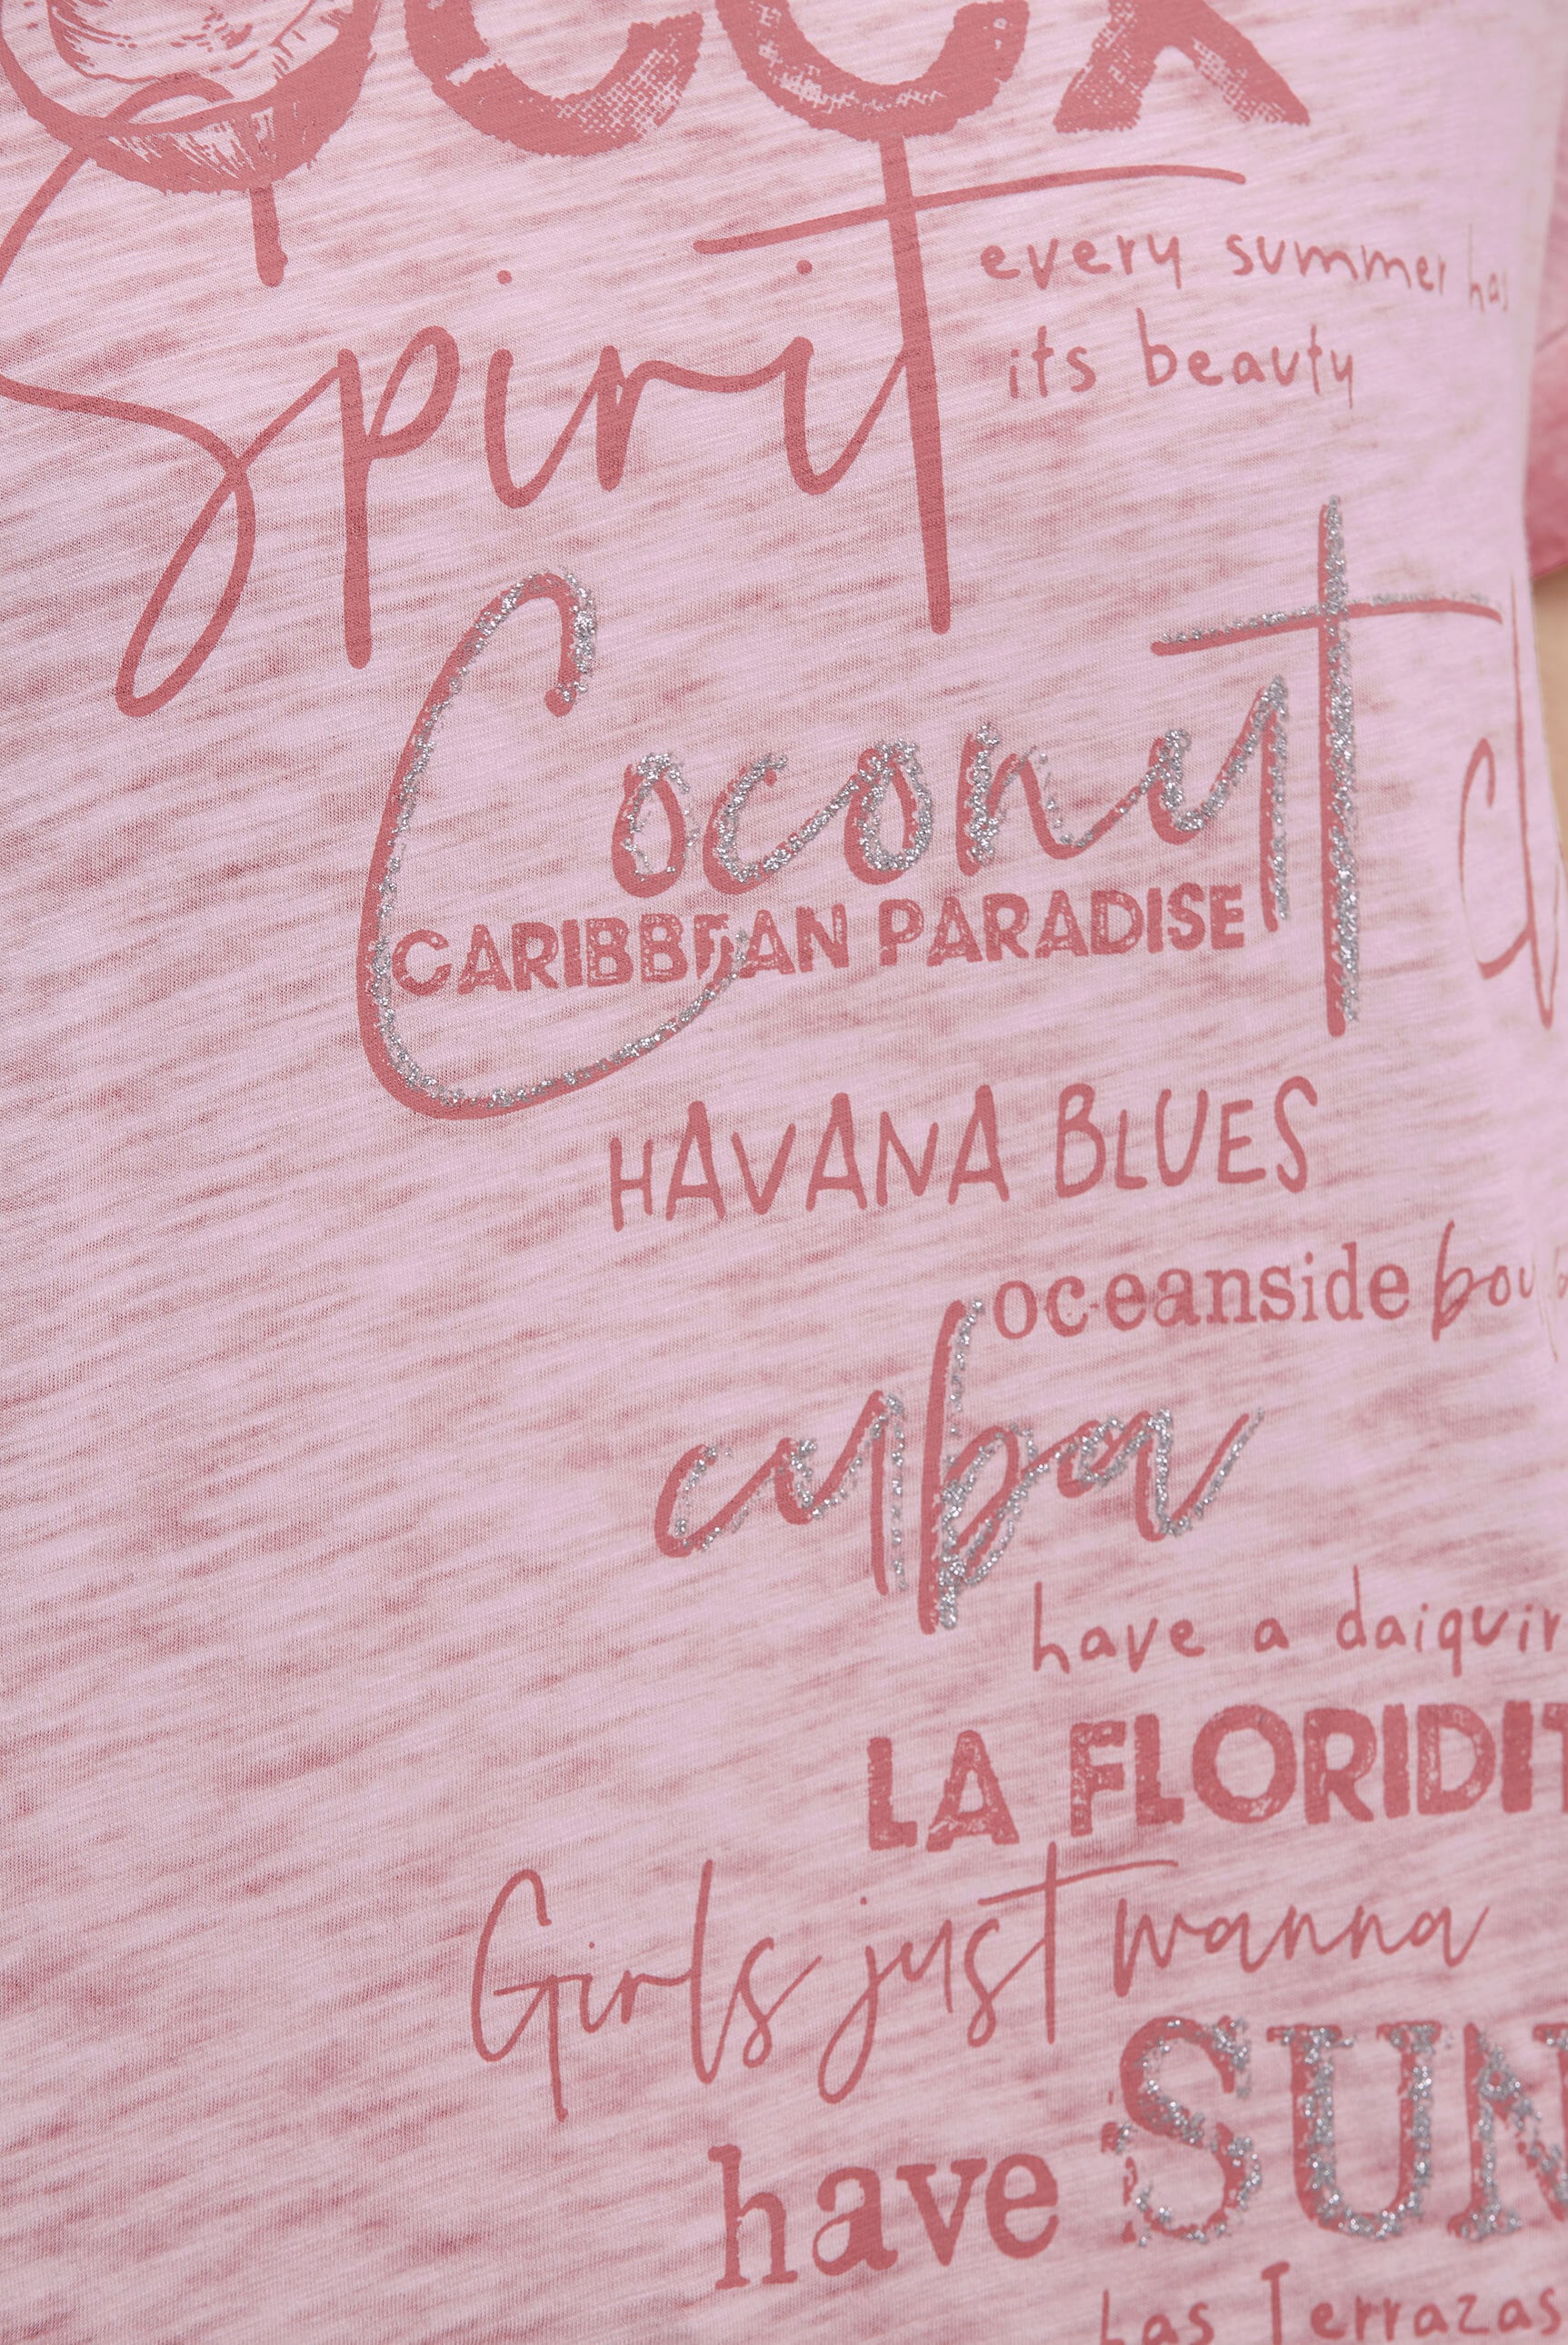 Spirit
every summer has
its beauty
Coconut
CARIBBEAN PARADISE
HAVANA BLUES
oceanside
cuba
have a daiquir
LA FLORIDIT
Girls just wanna
have SUN
Las Terrazas